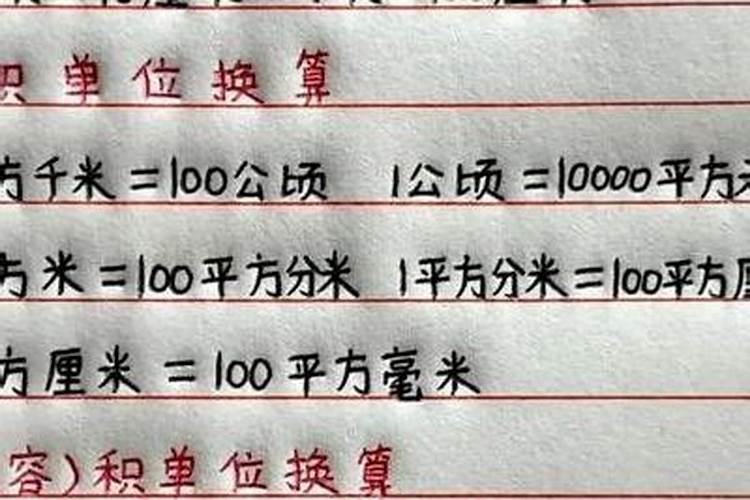 积单位换算
方千米=100公顷 1公顷=10000平方米
方米=100平方分米 1平方分米=100平方厘
方厘米=100平方毫米
容)积单位换算